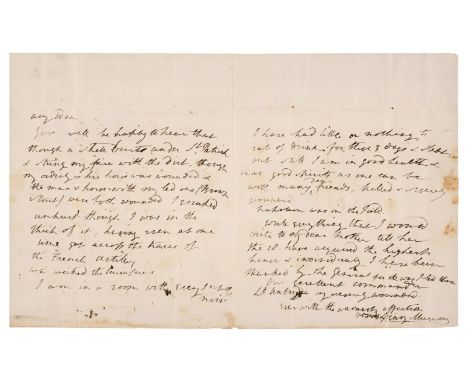 My Dear
You will be happy to hear that
though a Shell burst under St Patrick
& stung my face with the dirt. though
my orderly & his horse was wounded &
the man & horse with my led one (Brown
Stout) were both wounded I escaped
unhurt though I was in the
thick of it, having even at one
time got across the traces of
the French Artillery
we worked the Cuirassiers
I am in a room with
more
I have had little or nothing to
eat or drink for these 3 days & slept
out still I am in good health &
as good spirits as one can be
with many friends, killed & severely
wounded
Napoleon was in the Field
write everything that I would
write to my dear Mother tell her
the 18 have acquired the highest
honor & individually I have been
thanked by the General for the way I led them
Our Excellent commander
Ld Uxbridge is severely wounded.
Ever with the warmest affection
Henry Murray